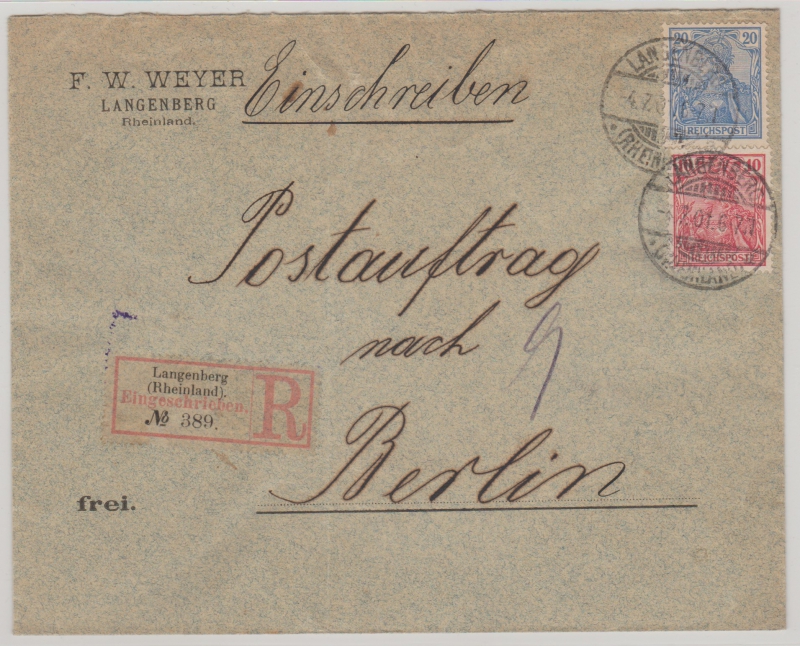 F. W. WEYER
LANGENBERG
Rheinland.
Einschreiben
20 20
REICHSPOST
LANGENBERG
(RHEINLAND)
10
REICHSPOST
LANGENBERG
(RHEINLAND)
Postauftrag
nach
Berlin
Langenberg
(Rheinland).
Eingeschrieben.
№ 389.
R
frei.